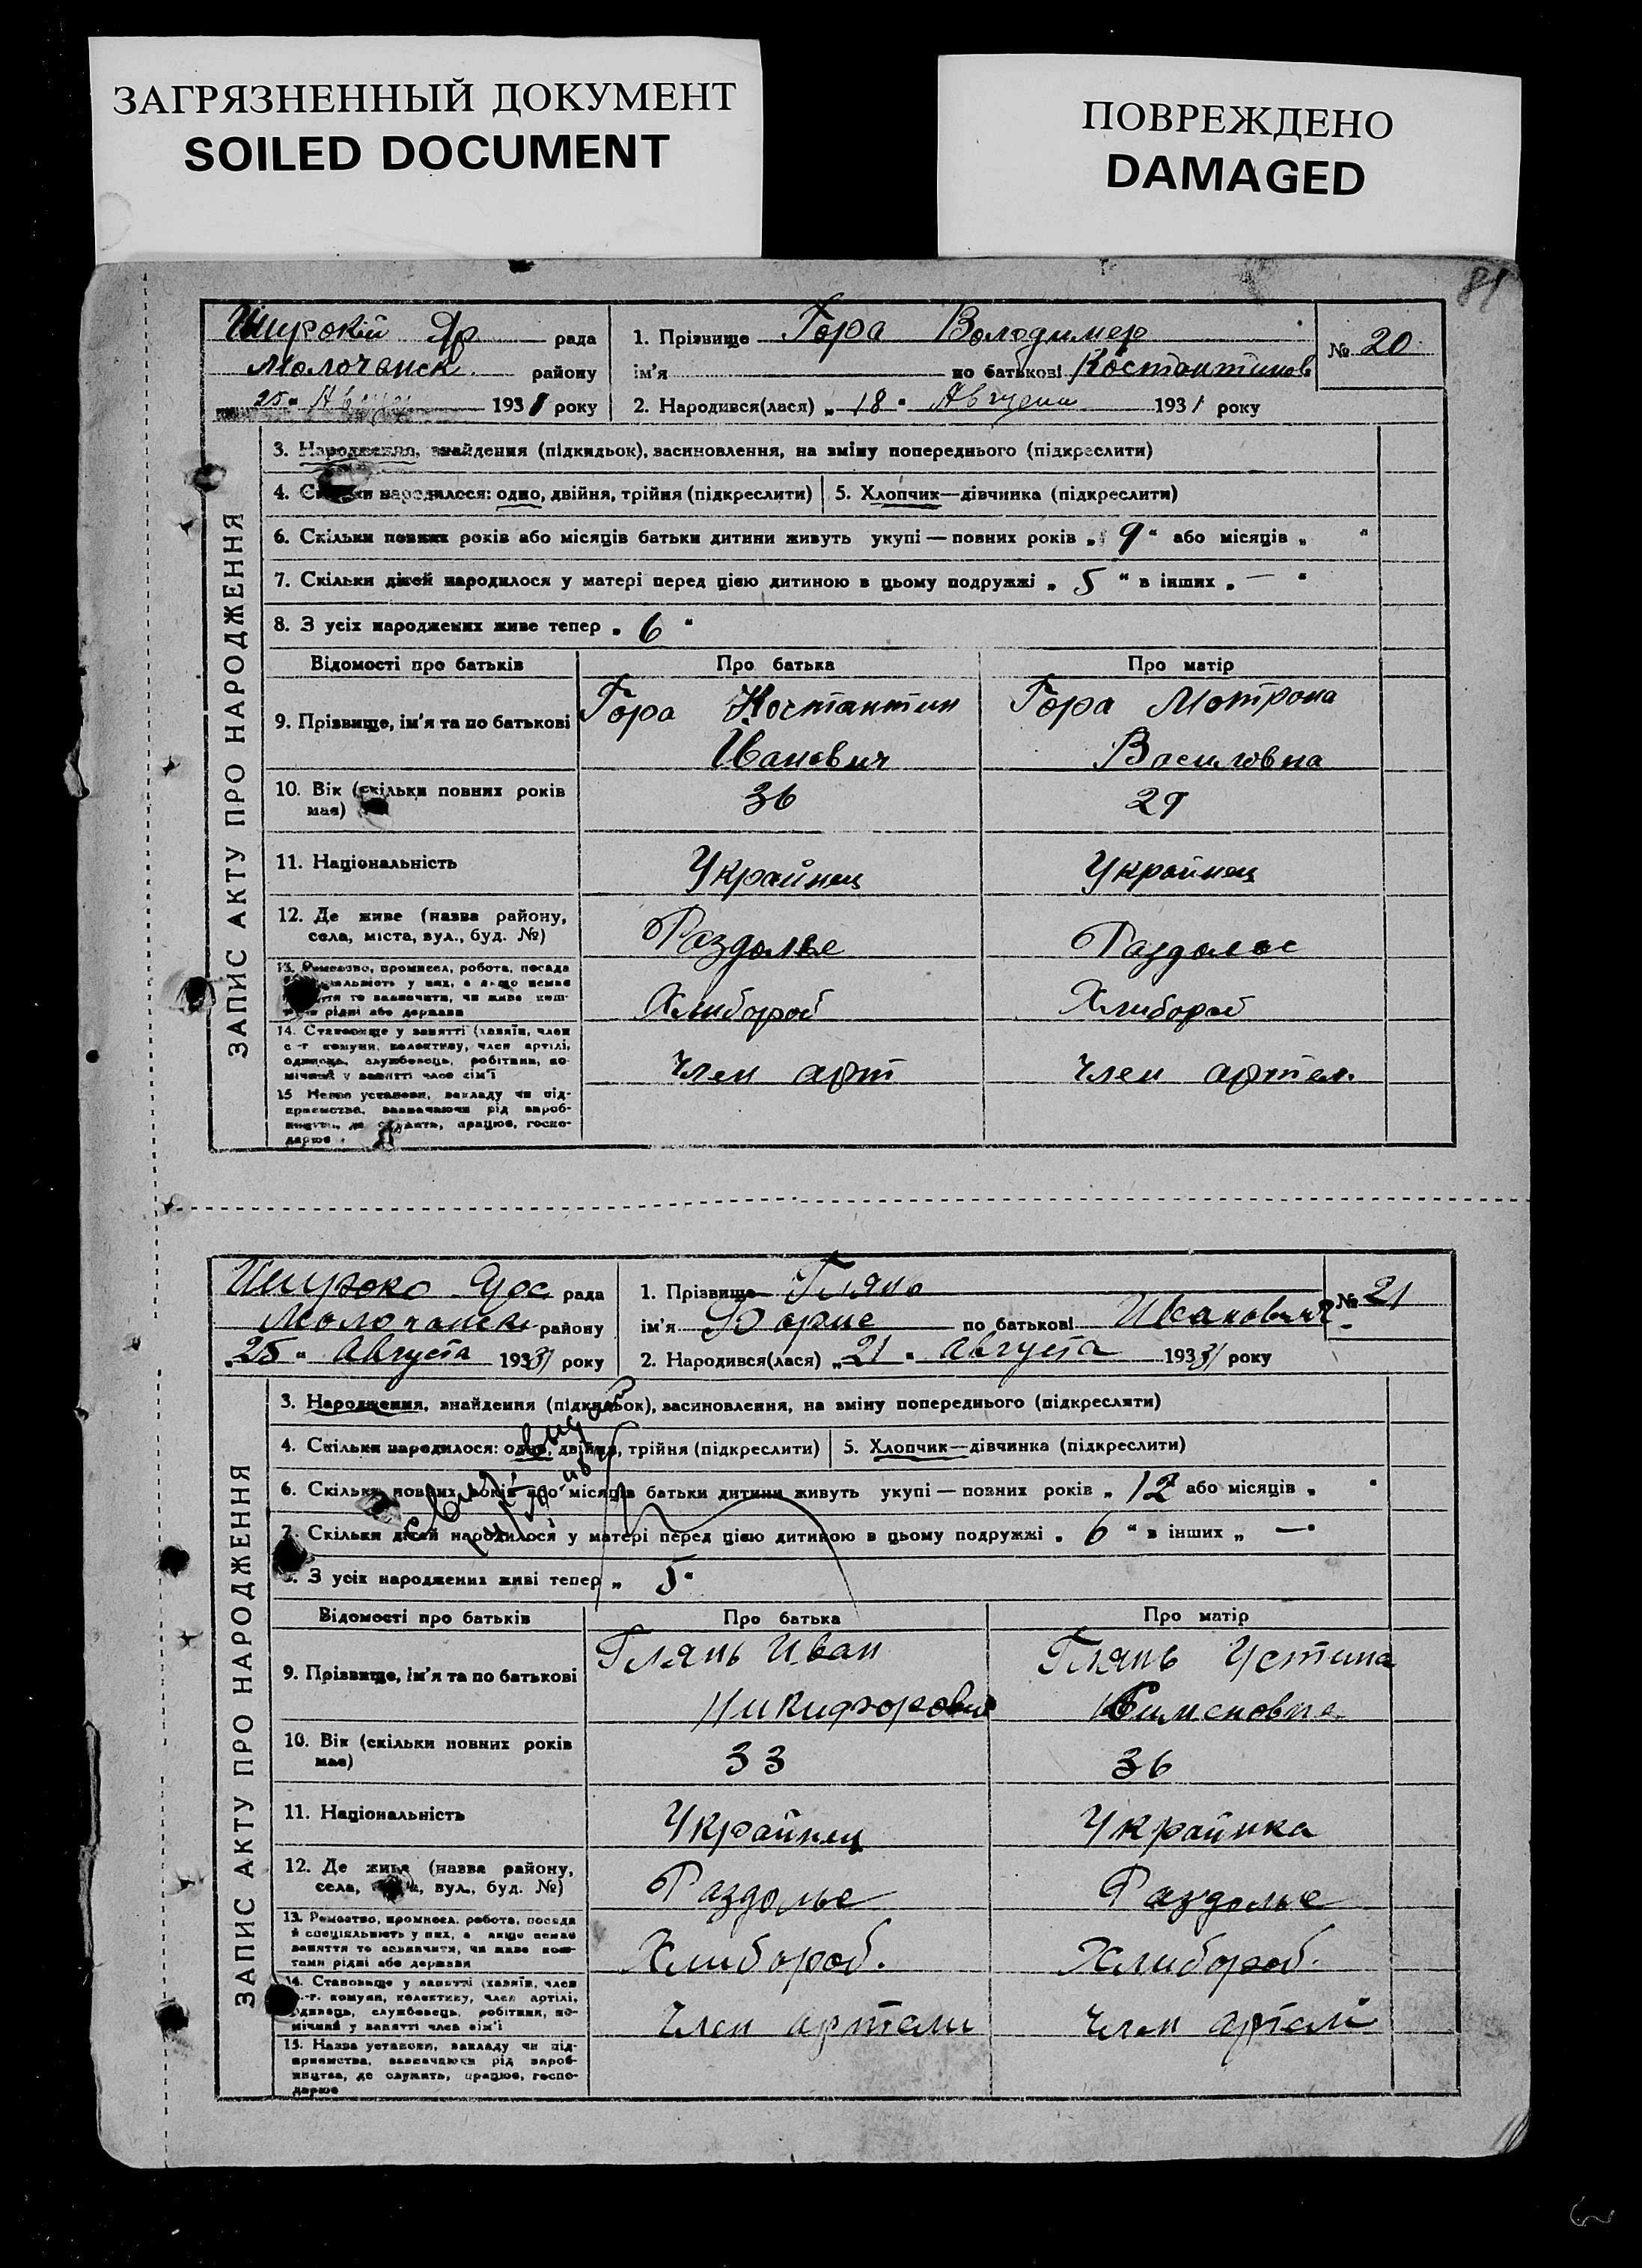 ЗАГРЯЗНЕННЫЙ ДОКУМЕНТ
SOILED DOCUMENT
ПОВРЕЖДЕНО
DAMAGED
81
Широкій Яр рада
Молочанск району
25 " Август 1931 року
1. Прізвище Гора Володимер
ім'я по батькові Костантинов
№ 20
2. Народився(лася) „ 18 " Августа 1931 року
ЗАПИС АКТУ ПРО НАРОДЖЕННЯ
3. Народження, знайдення (підкидьок), засиновлення, на зміну попереднього (підкреслити)
4. Скільки народилося: одно, двійня, трійня (підкреслити) 5. Хлопчик—дівчинка (підкреслити)
6. Скільки повних років або місяців батьки дитини живуть укупі — повних років „ 9 " або місяців „ "
7. Скільки дітей народилося у матері перед цією дитиною в цьому подружжі „ 5 " в інших „ — "
8. З усіх народжених живе тепер „ 6 "
Відомості про батьків Про батька Про матір
9. Прізвище, ім'я та по батькові Гора Костантин Гора Мотрона
Иванович Василовна
10. Вік (скільки повних років
має) 36 29
11. Національність Украйнец Украйнец
12. Де живе (назва району,
села, міста, вул., буд. №) Раздолье Раздолье
13. Ремество, промисел, робота, посада
й спеціяльність у них, а якщо немає
заняття то зазначити, чи живе кош-
тами рідні або держави Хлибороб Хлибороб
14. Становище у занятті (хазяїн, член
с.-г. комуни, колективу, член артілі,
одинець, службовець, робітник, по-
мічний у занятті член сім'ї Член арт Член артел.
15 Назва установи, закладу чи під-
приємства, зазначаючи рід вироб-
ництва, де служить, працює, госпо-
дарює
Широко рада
Молочанск району
„ 25 " Августа 1931 року
1. Прізвище Глянь
ім'я Борис по батькові Иванович
№ 21
2. Народився(лася) „ 21 " Августа 1931 року
ЗАПИС АКТУ ПРО НАРОДЖЕННЯ
3. Народження, знайдення (підкидьок), засиновлення, на зміну попереднього (підкреслити)
4. Скільки народилося: одно, двійня, трійня (підкреслити) 5. Хлопчик—дівчинка (підкреслити)
6. Скільки повних років або місяців батьки дитини живуть укупі — повних років „ 12 " або місяців „ "
7. Скільки дітей народилося у матері перед цією дитиною в цьому подружжі „ 6 " в інших „ — "
8. З усіх народжених живі тепер „ 5 "
Відомості про батьків Про батька Про матір
9. Прізвище, ім'я та по батькові Глянь Иван Глянь Устина
Никифорович Симоновна
10. Вік (скільки повних років
має) 33 36
11. Національність Украйнец Украйнка
12. Де живе (назва району,
села, міста, вул., буд. №) Раздолье Раздолье
13. Ремество, промисел, робота, посада
й спеціяльність у них, а якщо немає
заняття то зазначити, чи живе кош-
тами рідні або держави Хлибороб. Хлибороб.
14. Становище у занятті (хазяїн, член
с.-г. комуни, колективу, член артілі,
одинець, службовець, робітник, по-
мічний у занятті член сім'ї Член артели Член артели
15. Назва установи, закладу чи під-
приємства, зазначаючи рід вироб-
ництва, де служить, працює, госпо-
дарює